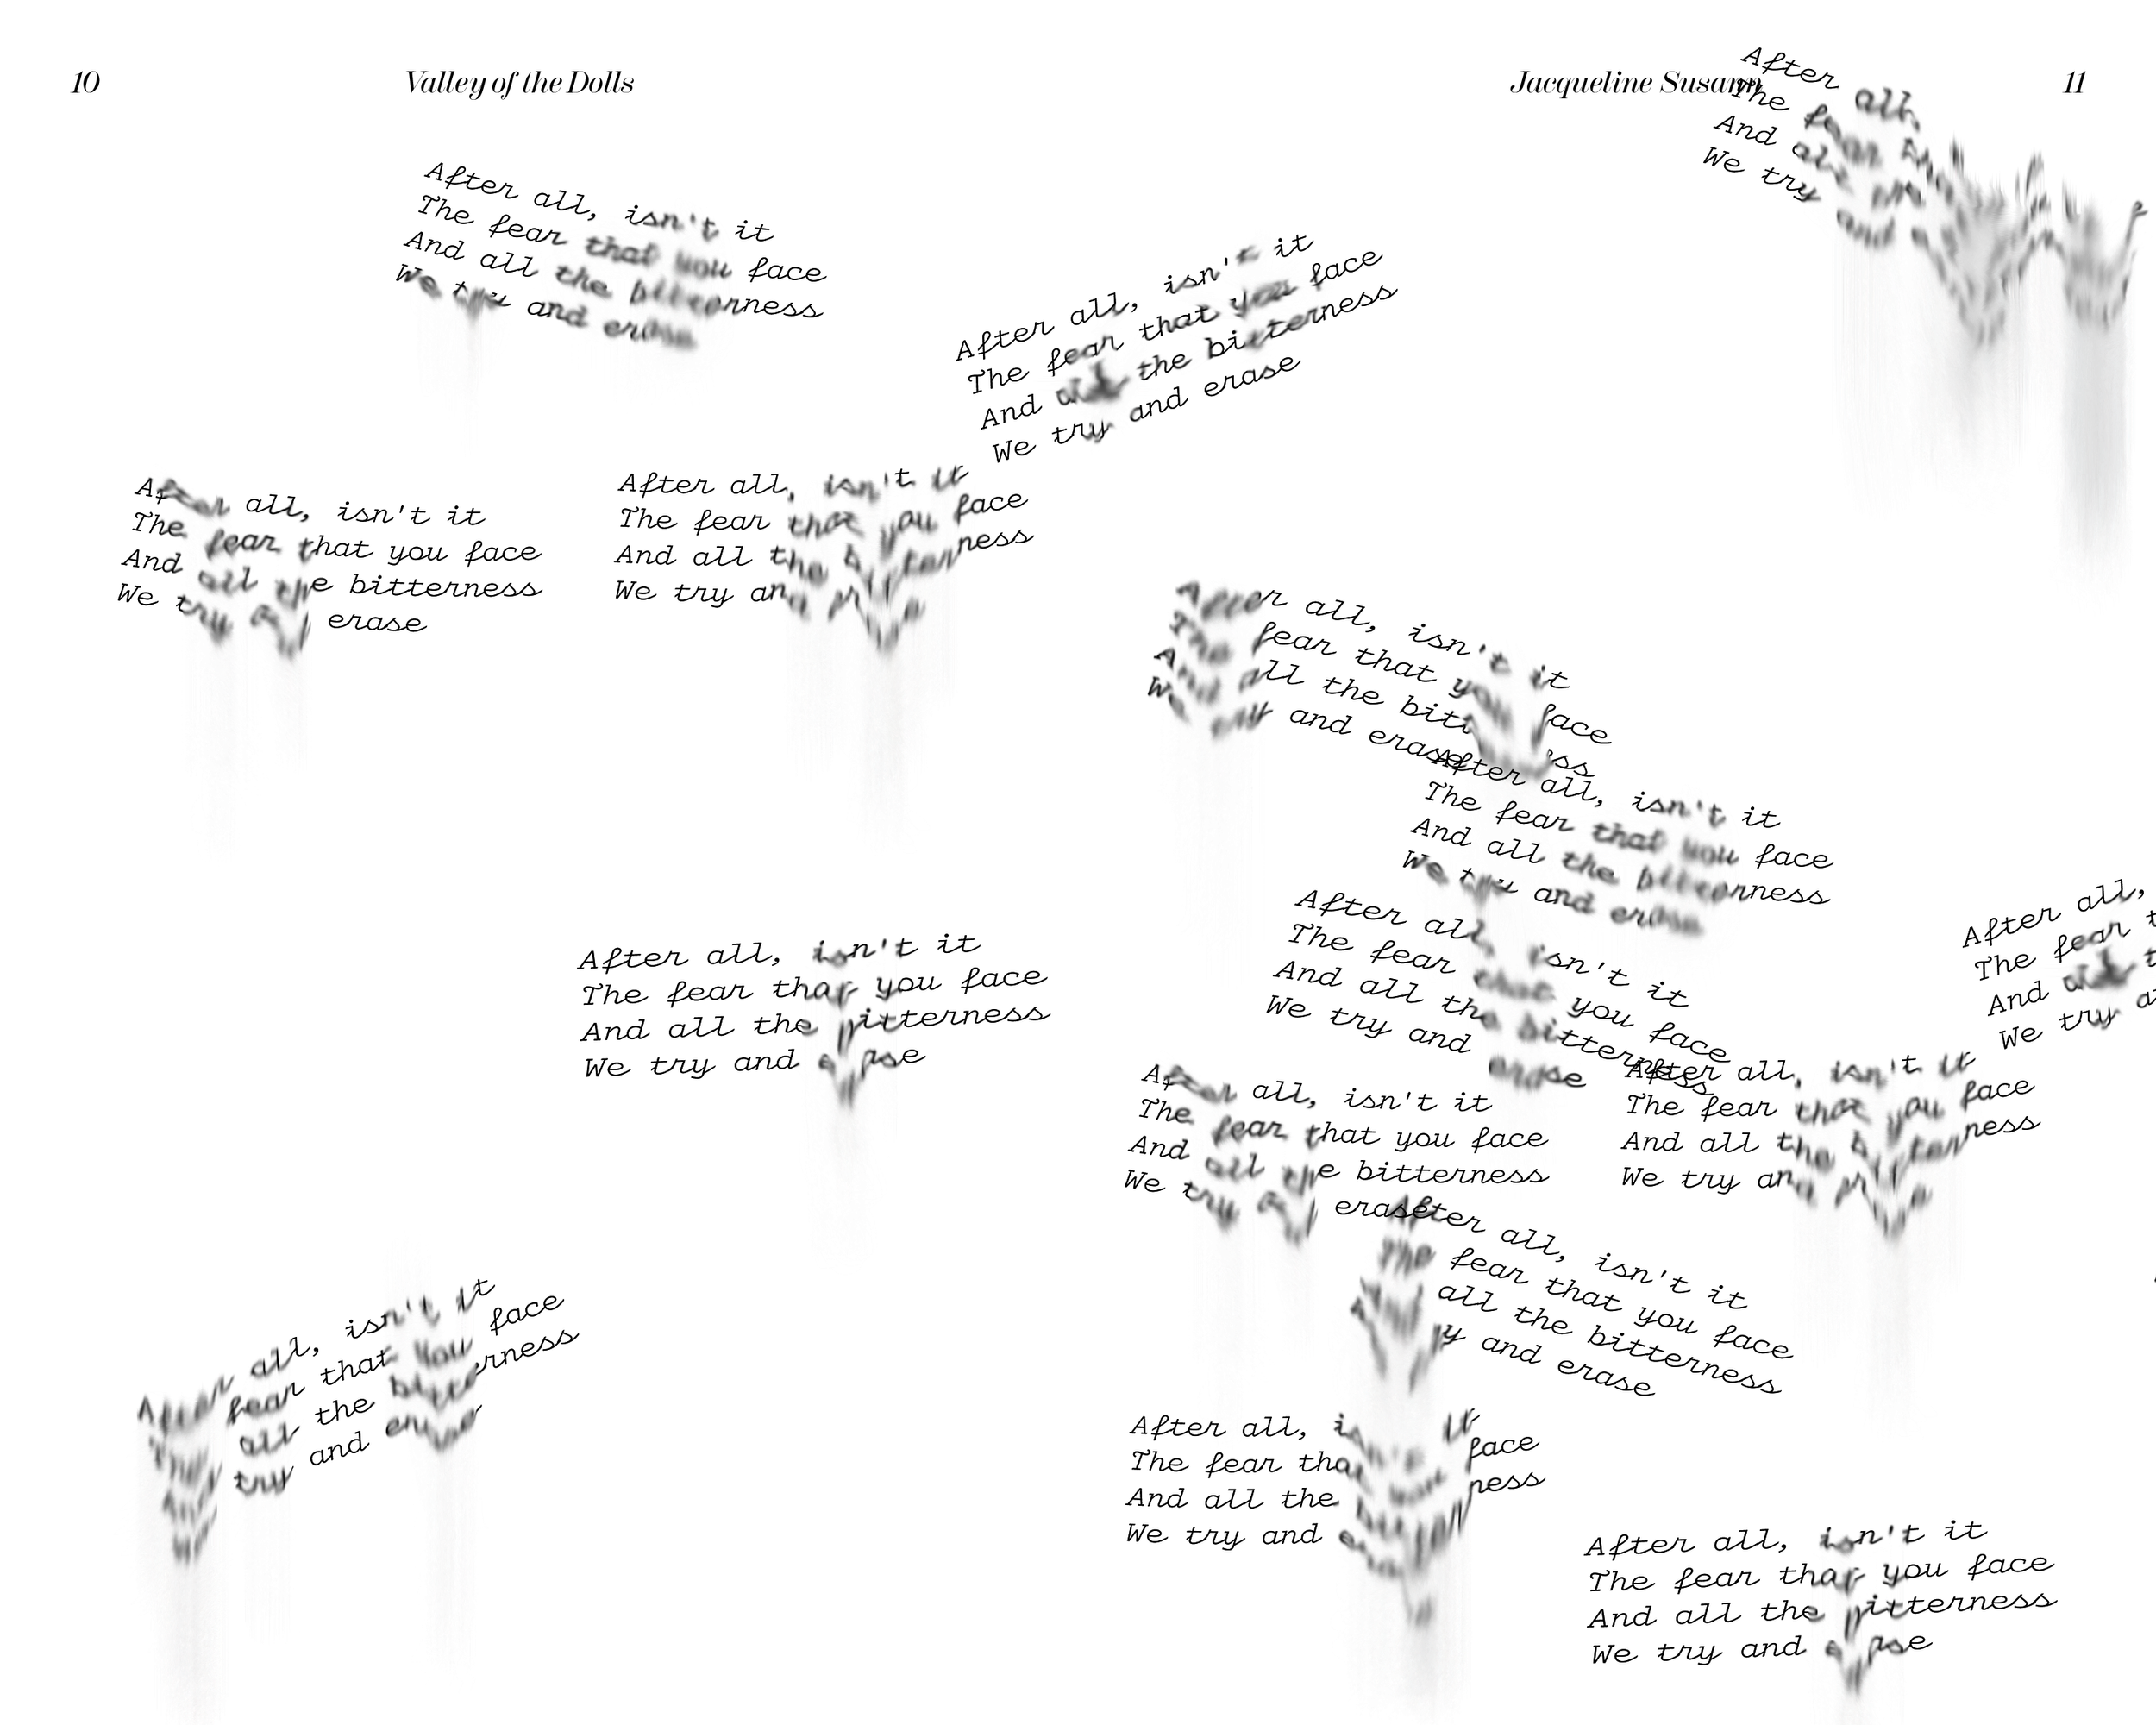 10
Valley of the Dolls
Jacqueline Susann
11
After all, isn't it
The fear that you face
And all the bitterness
We try and erase
After all, isn't it
The fear that you face
And the bitterness
We try and erase
After all, isn't it
The fear that you face
And all the bitterness
We try erase
After all, isn't it
The fear that you face
And all the bitterness
We try and
After all, isn't it
The fear that you face
And all the bitterness
We try and
After all, isn't it
fear that you face
all the bitterness
try and erase
After all,
The fear
And
We try and
After all, isn't it
The fear that you face
And all the
We try and erase
After all, isn't it
The fear that you face
And all the bitterness
We try and erase
After all, isn't it
The fear that you face
And all the bitterness
We try and erase
After all,
The fear
And
We try
After all, isn't it
The fear that you face
And all the bitterness
We try erase
After all, isn't it
The fear that you face
And all the bitterness
We try and
After all, isn't it
The fear that you face
all the bitterness
and erase
After all, isn't it
The fear that face
And all the
We try and
After all, isn't it
The fear that you face
And all the bitterness
We try and